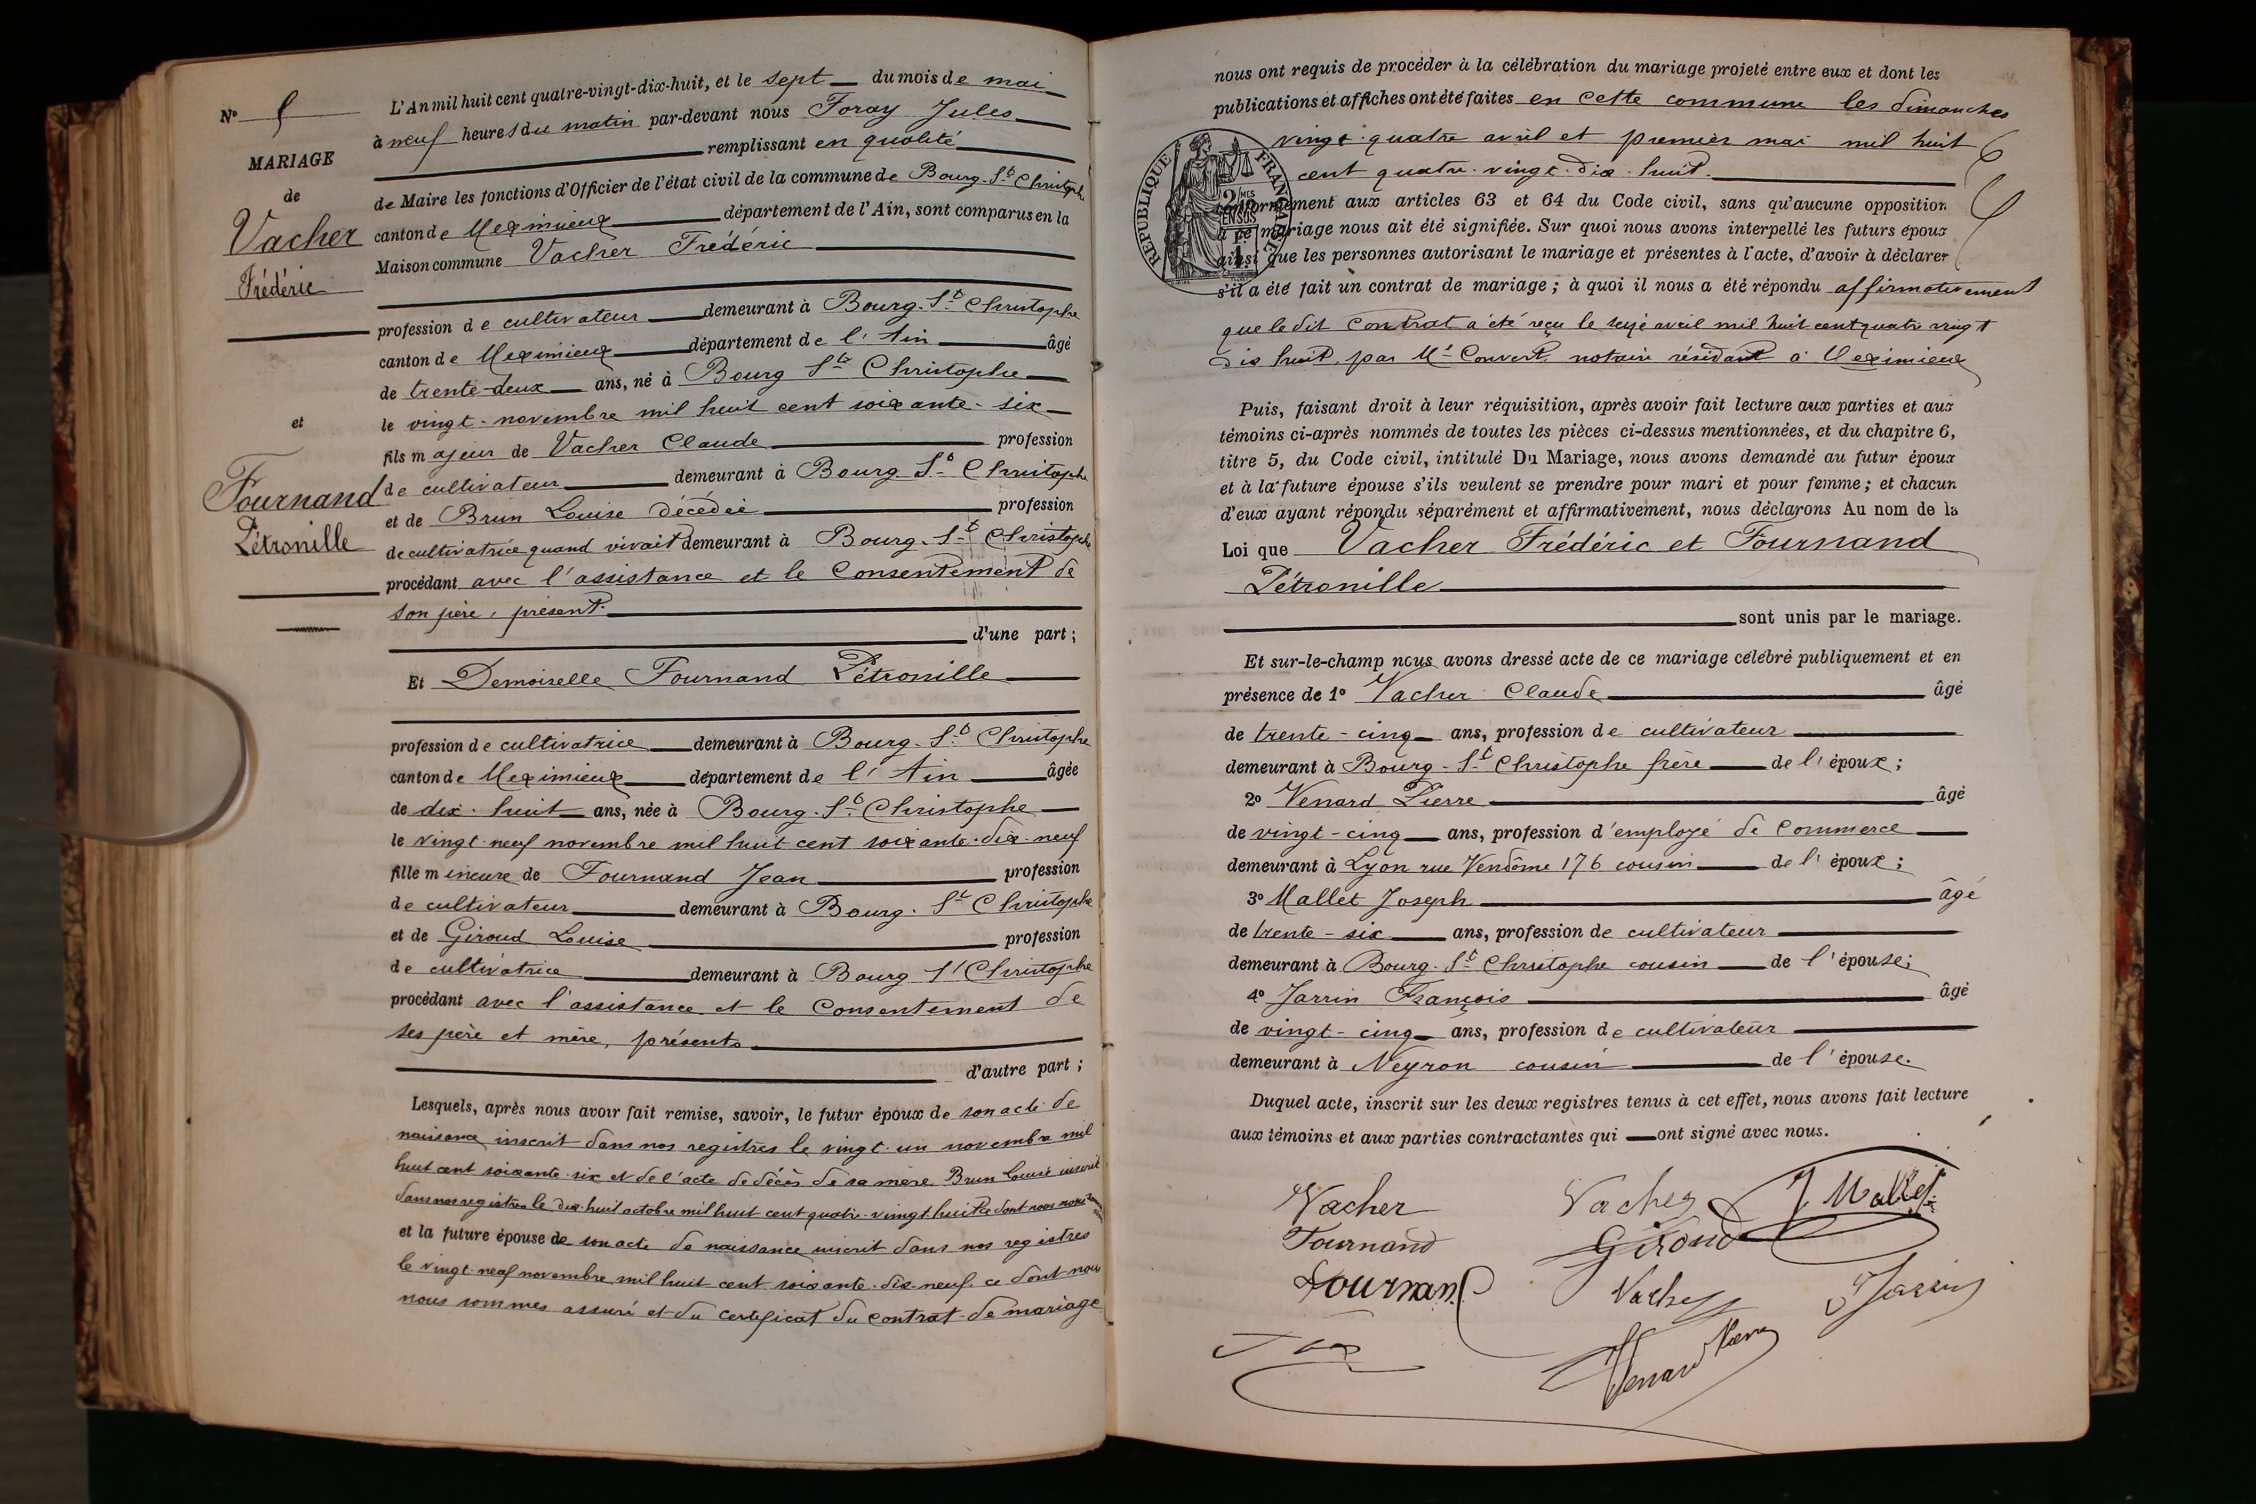 Nº 5
MARIAGE
de
Vacher
Frédéric
et
Fournand
Pétronille
L'An mil huit cent quatre-vingt-dix-huit, et le sept du mois de mai
à neuf heures du matin par-devant nous Foray Jules
remplissant en qualité
de Maire les fonctions d'Officier de l'état civil de la commune de Bourg-St Christophe
canton de Meximieux département de l'Ain, sont comparus en la
Maison commune Vacher Frédéric
profession de cultivateur demeurant à Bourg-St Christophe
canton de Meximieux département de l'Ain âgé
de trente-deux ans, né à Bourg St Christophe
le vingt-novembre mil huit cent soixante-six
fils majeur de Vacher Claude profession
de cultivateur demeurant à Bourg-St Christophe
et de Brun Louise décédée profession
de cultivatrice quand vivait demeurant à Bourg-St Christophe
procédant avec l'assistance et le consentement de
son père, présent.
d'une part ;
Et Demoiselle Fournand Pétronille
profession de cultivatrice demeurant à Bourg-St Christophe
canton de Meximieux département de l'Ain âgée
de dix-huit ans, née à Bourg-St Christophe
le vingt-neuf novembre mil huit cent soixante-dix-neuf
fille mineure de Fournand Jean profession
de cultivateur demeurant à Bourg-St Christophe
et de Giroud Louise profession
de cultivatrice demeurant à Bourg St Christophe
procédant avec l'assistance et le consentement de
ses père et mère, présents
d'autre part ;
Lesquels, après nous avoir fait remise, savoir, le futur époux de son acte de
naissance inscrit dans nos registres le vingt-un novembre mil
huit cent soixante-six et de l'acte de décès de sa mère Brun Louise inscrit
dans nos registres le dix-huit octobre mil huit cent quatre-vingt-huit ce dont nous nous sommes
et la future épouse de son acte de naissance inscrit dans nos registres
le vingt-neuf novembre mil huit cent soixante-dix-neuf. ce dont nous
nous sommes assuré et du certificat du contrat de mariage
nous ont requis de procéder à la célébration du mariage projeté entre eux et dont les
publications et affiches ont été faites en cette commune les dimanches
vingt-quatre avril et premier mai mil huit
cent quatre-vingt-dix-huit.
REPUBLIQUE FRANÇAISE
conformément aux articles 63 et 64 du Code civil, sans qu'aucune opposition
à ce mariage nous ait été signifiée. Sur quoi nous avons interpellé les futurs époux
ainsi que les personnes autorisant le mariage et présentes à l'acte, d'avoir à déclarer
s'il a été fait un contrat de mariage ; à quoi il nous a été répondu affirmativement
que le dit contrat a été reçu le seize avril mil huit cent quatre vingt
dix huit. par Me Convert. notaire résidant à Meximieux
Puis, faisant droit à leur réquisition, après avoir fait lecture aux parties et aux
témoins ci-après nommés de toutes les pièces ci-dessus mentionnées, et du chapitre 6,
titre 5, du Code civil, intitulé Du Mariage, nous avons demandé au futur époux
et à la future épouse s'ils veulent se prendre pour mari et pour femme ; et chacun
d'eux ayant répondu séparément et affirmativement, nous déclarons Au nom de la
Loi que Vacher Frédéric et Fournand
Pétronille
sont unis par le mariage.
Et sur-le-champ nous avons dressé acte de ce mariage célébré publiquement et en
présence de 1º Vacher Claude âgé
de trente-cinq ans, profession de cultivateur
demeurant à Bourg-St Christophe frère de l'époux ;
2º Venard Pierre âgé
de vingt-cinq ans, profession d'employé de commerce
demeurant à Lyon rue Vendôme 176 cousin de l'époux ;
3º Mallet Joseph âgé
de trente-six ans, profession de cultivateur
demeurant à Bourg-St Christophe cousin de l'épouse ;
4º Jarrin François âgé
de vingt-cinq ans, profession de cultivateur
demeurant à Neyron cousin de l'épouse.
Duquel acte, inscrit sur les deux registres tenus à cet effet, nous avons fait lecture
aux témoins et aux parties contractantes qui ont signé avec nous.
Vacher Vacher J Mallet
Fournand Giroud
Fournand Vacher Jarrin
Venard Pierre